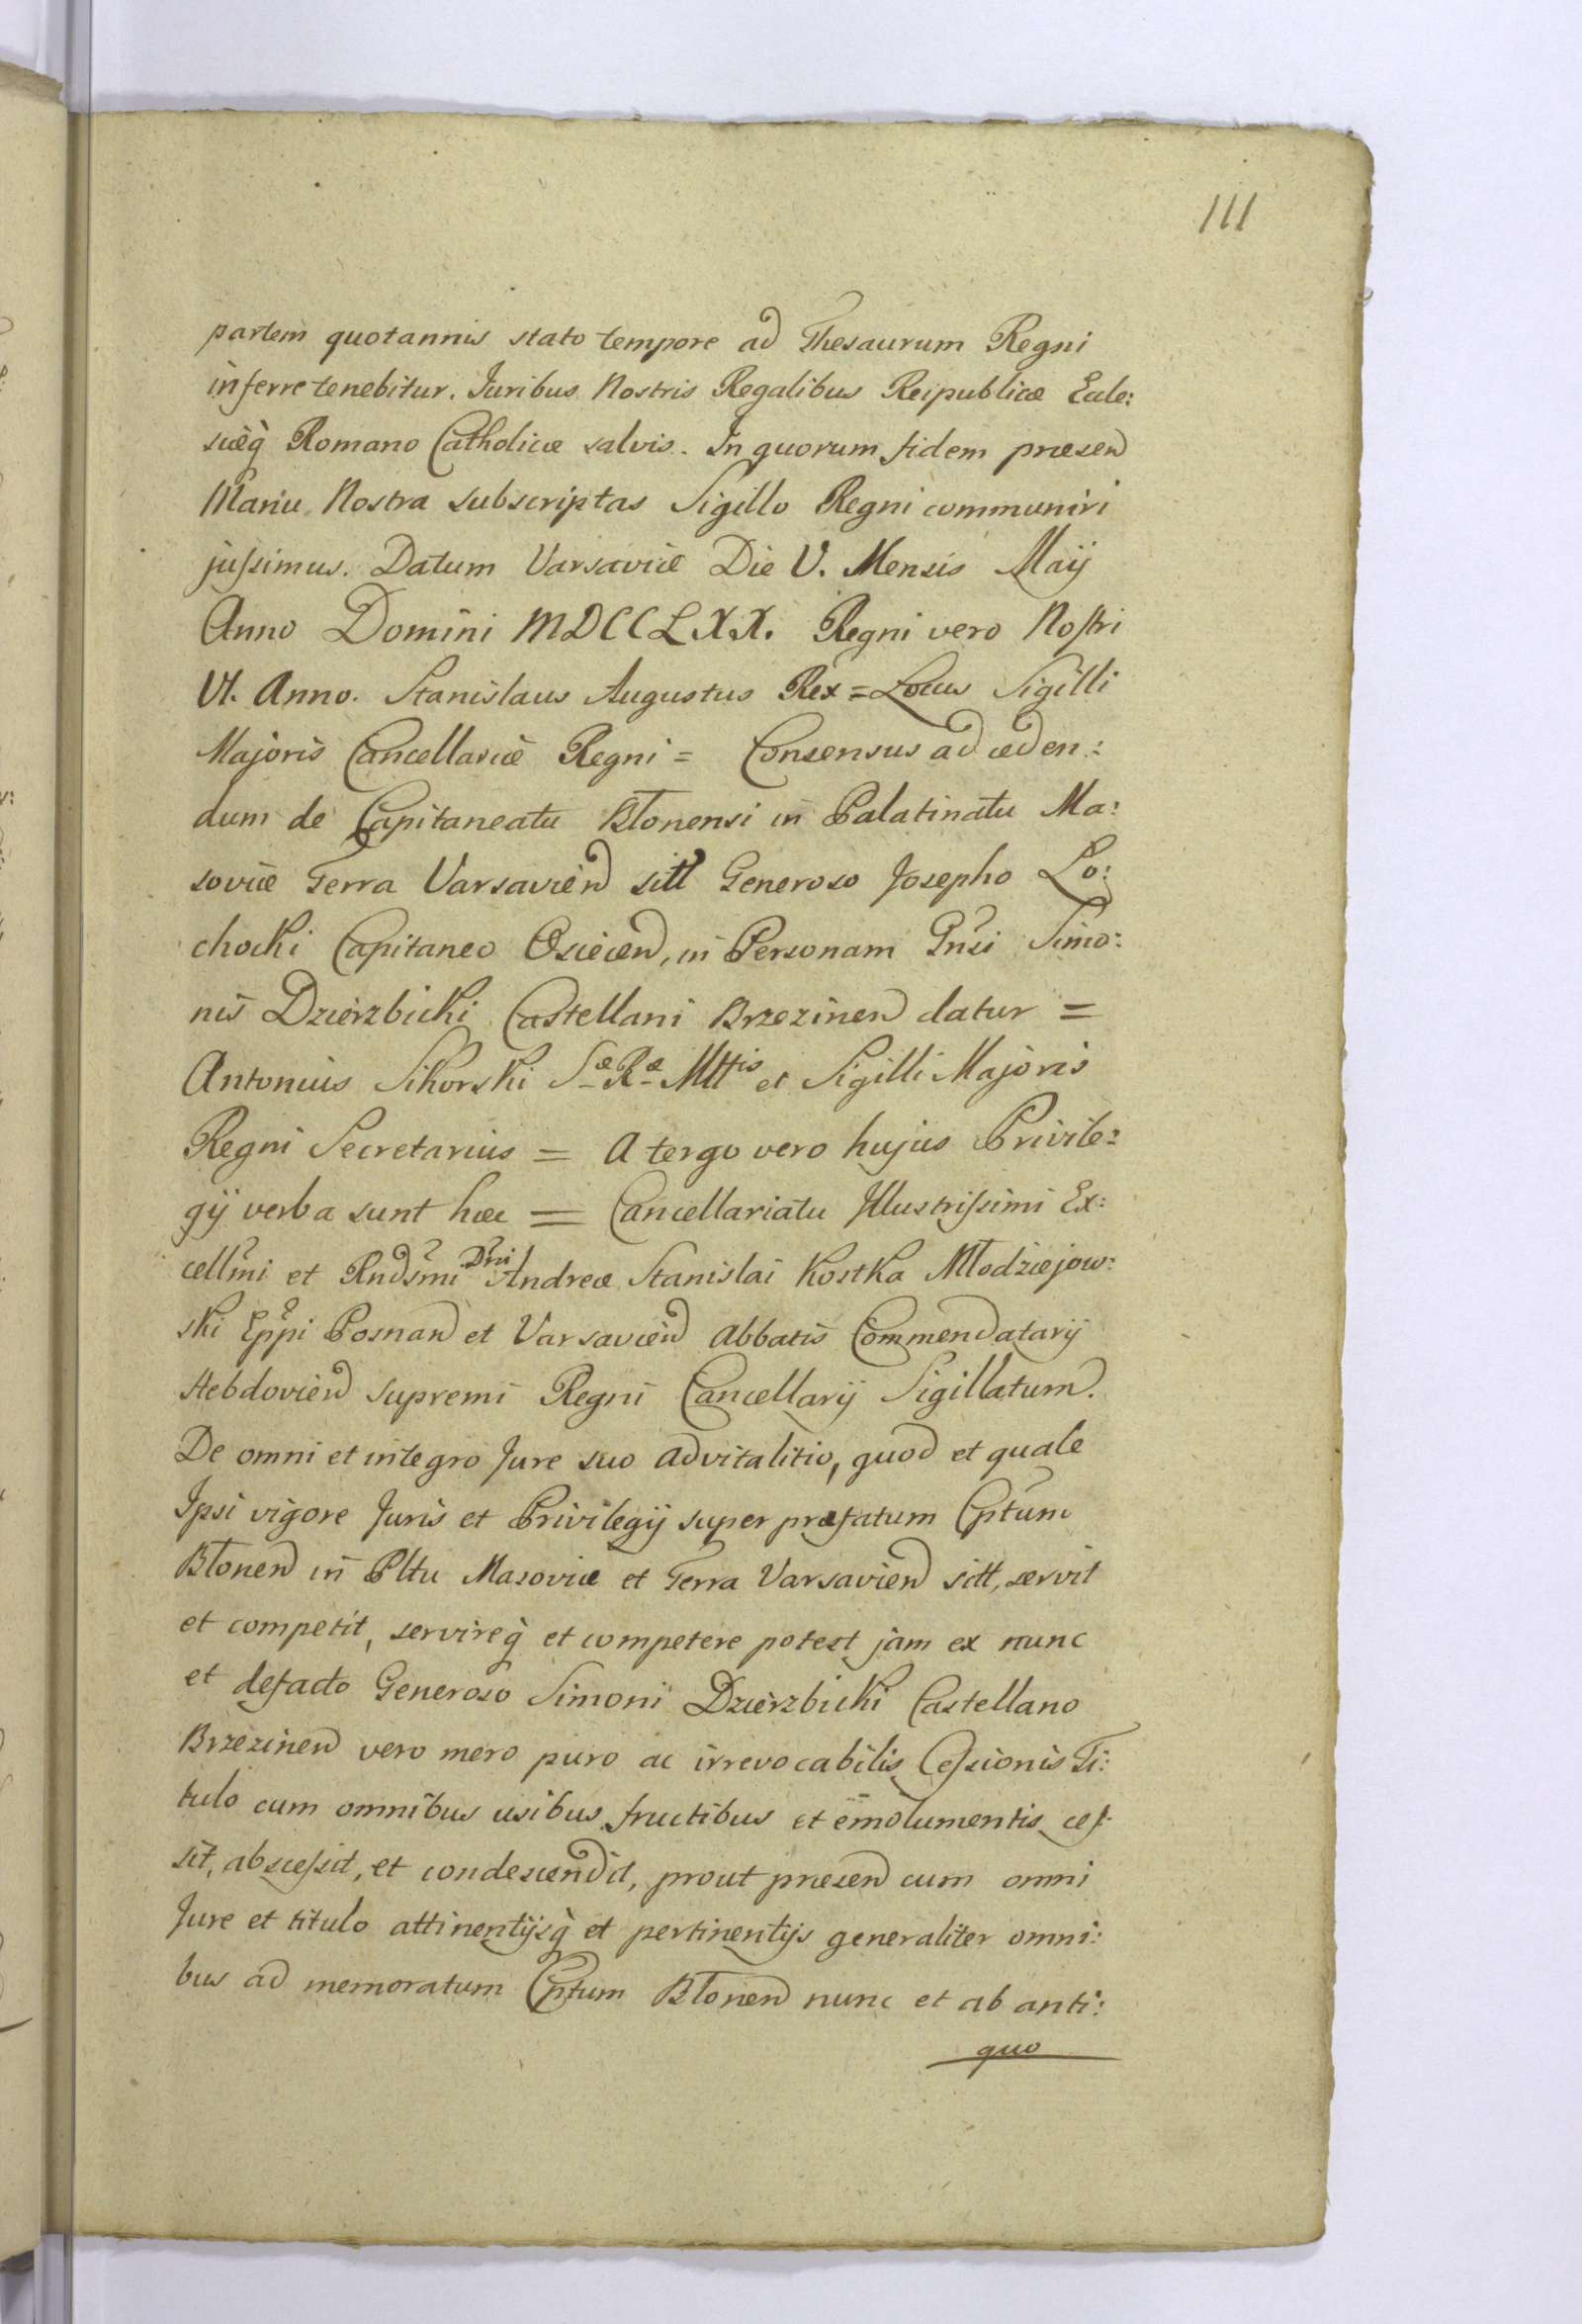 111
partem quotannis stato tempore ad Thesaurum Regni
inferre tenebitur. Juribus Nostris Regalibus Reipublicæ Eccle:
siæq̀ Romano Catholicæ salvis. In quorum fidem præsen
Manu Nostra subscriptas Sigillo Regni communiri
jussimus. Datum Varsaviæ Die V. Mensis Maij
Anno Domini MDCCLXX. Regni vero Nostri
VI. Anno. Stanislaus Augustus Rex = Locus Sigilli
Majoris Cancellariæ Regni = Consensus ad ceden:
dum de Capitaneatu Błonensi in Palatinatu Ma:
soviæ Terra Varsavien sitt Generoso Josepho Lo:
chocki Capitaneo Osiecen, in Personam Gnsi Simo:
nis Dzierzbicki Castellani Brzezinen datur =
Antonius Sikorski Sæ Ræ Mttis et Sigilli Majoris
Regni Secretarius = A tergo vero hujus Privile:
gij verba sunt hæc = Cancellariatu Illustrissimi Ex:
cellmi et Rndsmi Dni Andreæ Stanislai Kostka Młodziejow:
ski Eppi Posnan et Varsavien Abbatis Commendatarij
Hebdovien supremi Regni Cancellarij Sigillatum.
De omni et integro Jure suo advitalitio, quod et quale
Ipsi vigore Juris et Privilegij super præfatum Cptum
Błonen in Pltu Masoviæ et Terra Varsavien sitt, servit
et competit, servireq̀ et competere potest jam ex nunc
et defacto Generoso Simoni Dzierzbicki Castellano
Brzezinen vero mero puro ac irrevocabilis Cessionis Ti:
tulo cum omnibus usibus fructibus et emolumentis ces:
sit, abscessit, et condescendit, prout præsen cum omni
Jure et titulo attinentijsq̀ et pertinentijs generaliter omni:
bus ad memoratum Cptum Błonen nunc et ab anti:
quo